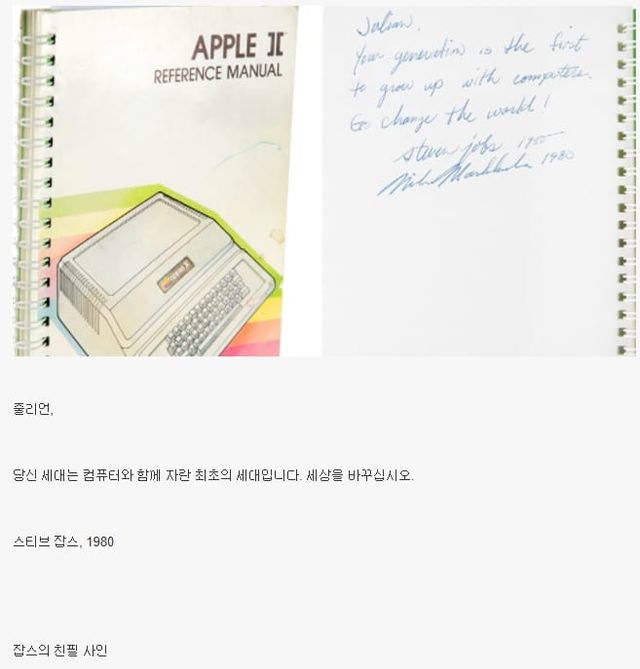 APPLE ][
REFERENCE MANUAL
Julian,
Your generation is the first
to grow up with computers.
Go change the world!
steven jobs 1980
Mike Markkula 1980
줄리언,
당신 세대는 컴퓨터와 함께 자란 최초의 세대입니다. 세상을 바꾸십시오.
스티브 잡스, 1980
잡스의 친필 사인